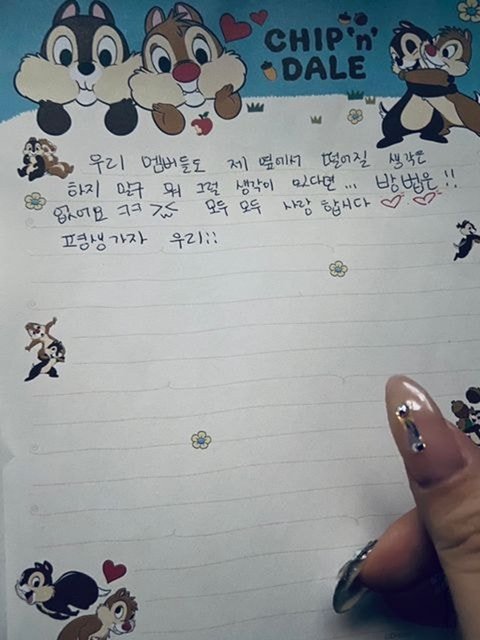 CHIP 'n' DALE
우리 멤버들도 제 옆에서 떨어질 생각은
하지 말구 뭐 그럴 생각이 있다면... 방법은!!
없어요 ㅋㅋ >< 모두 모두 사랑 합시다 ♡ ♡
평생가자 우리!!